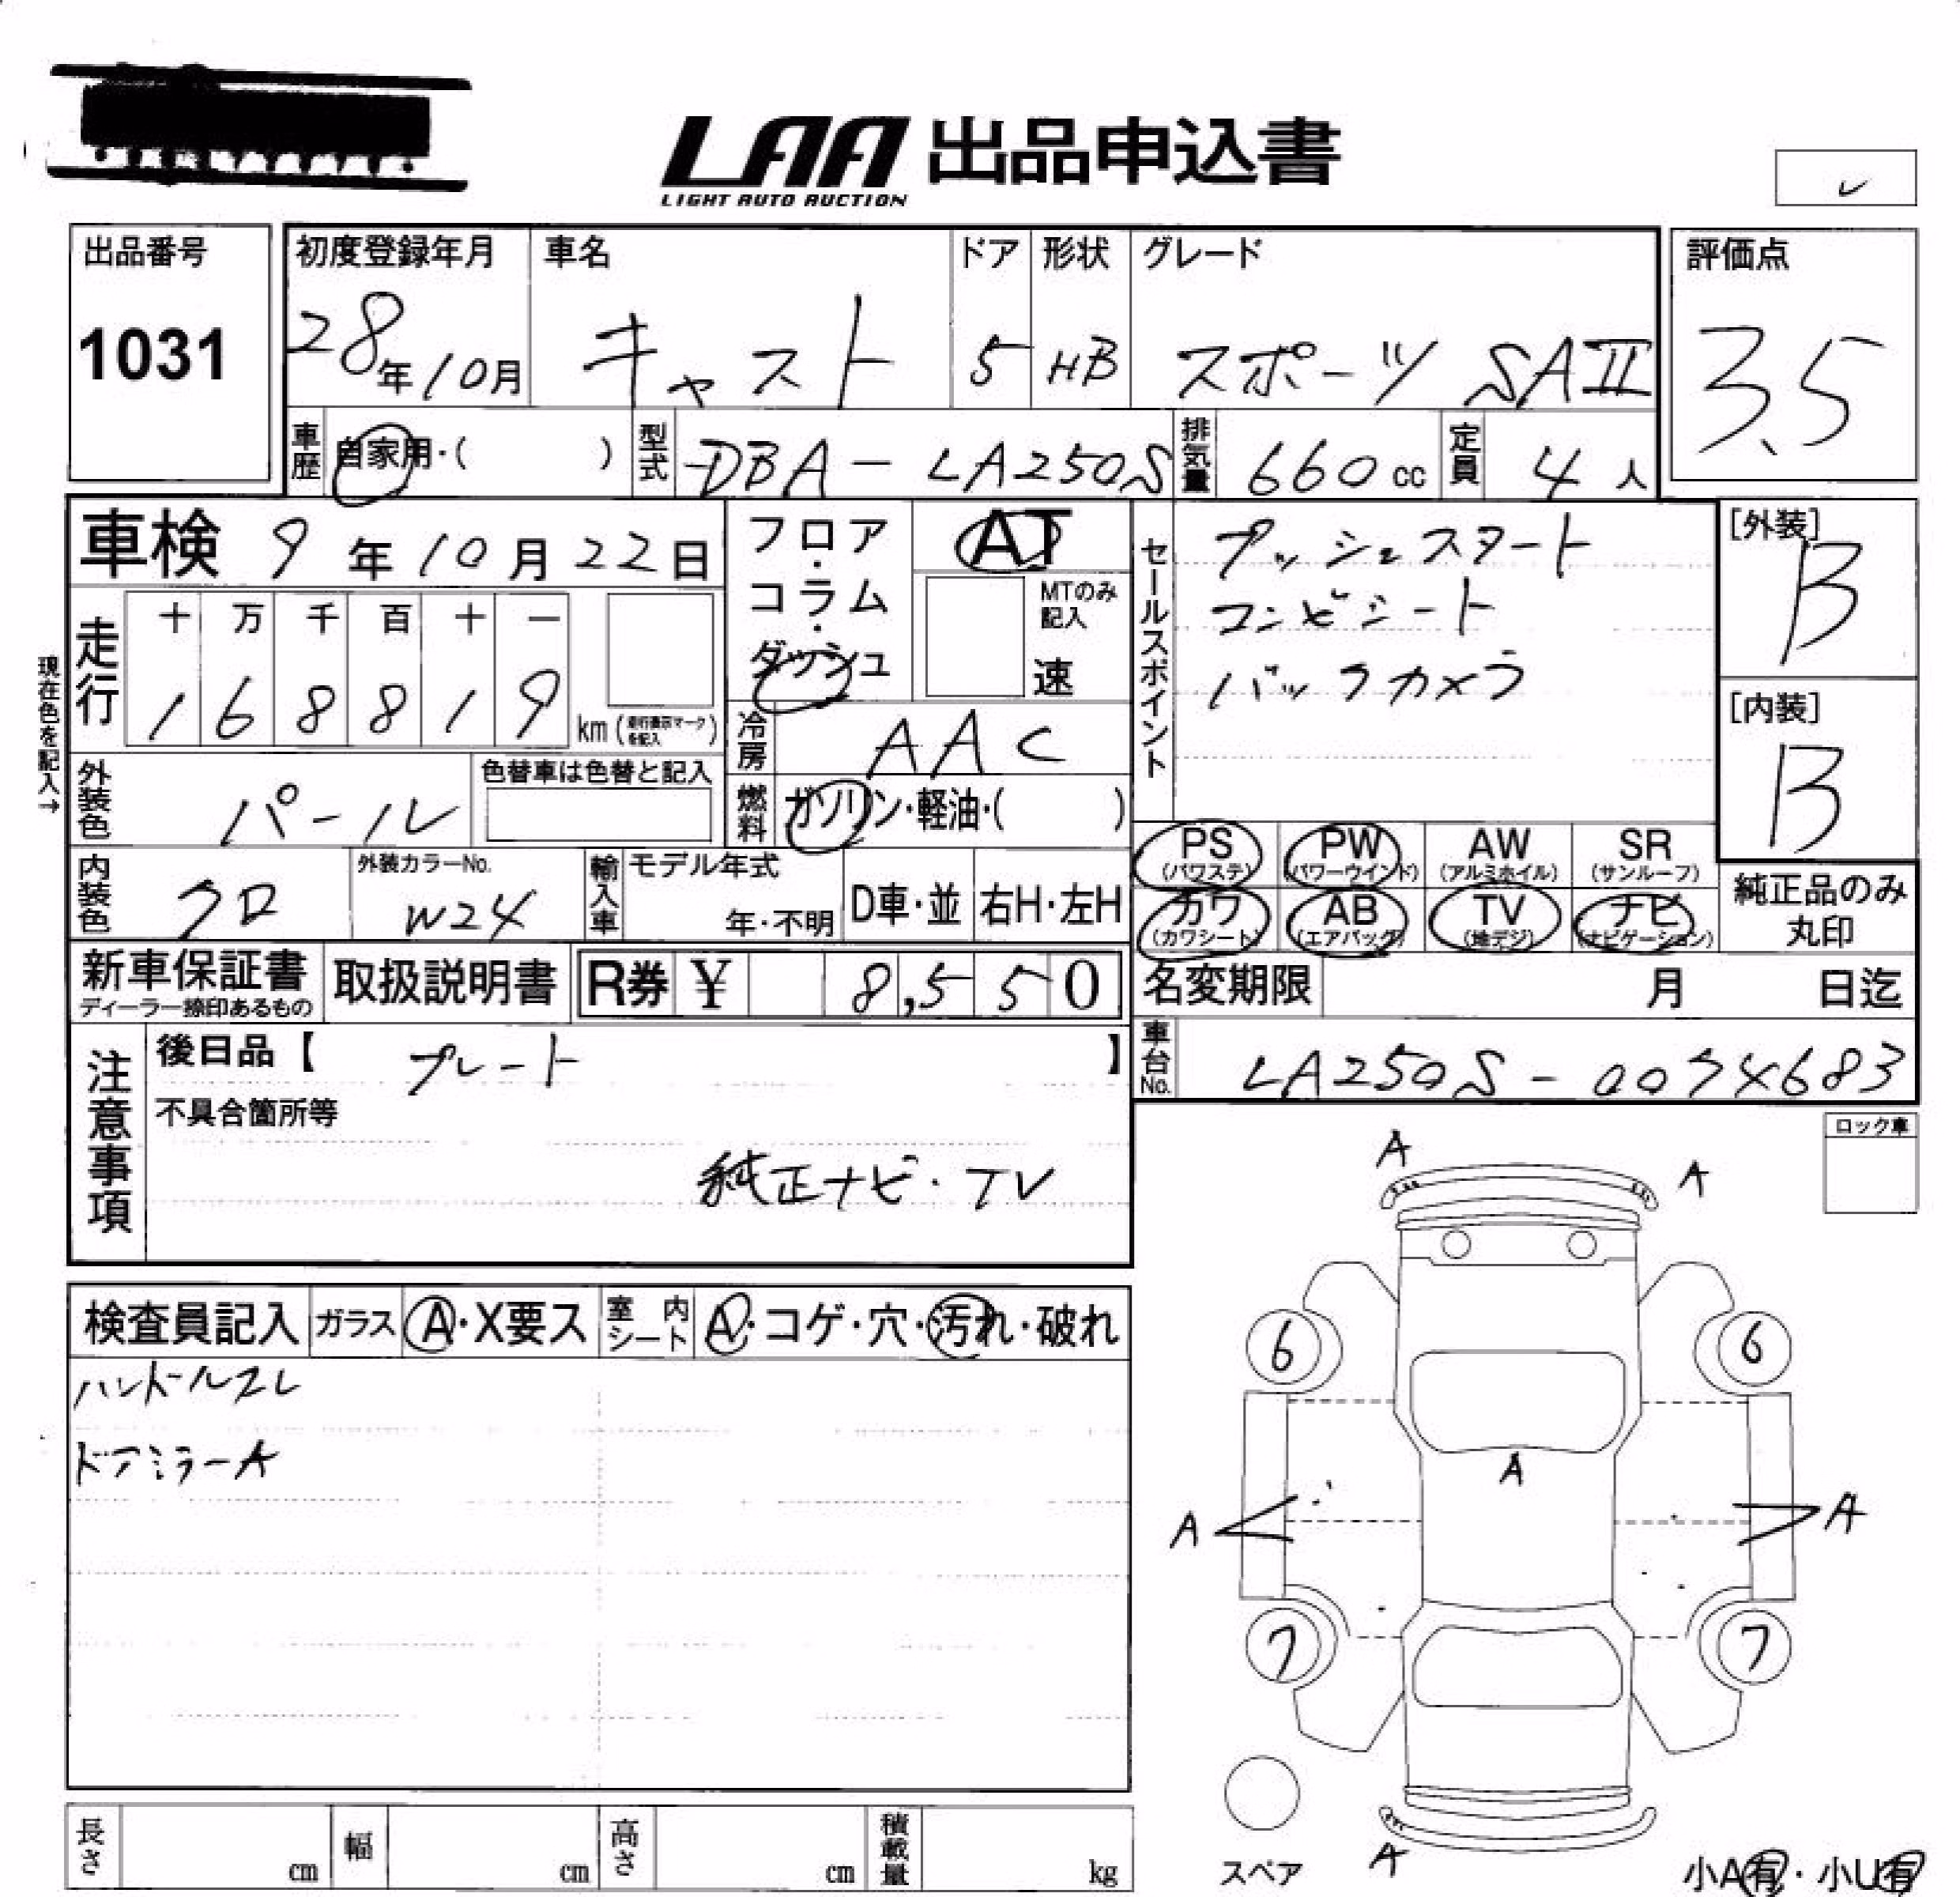 LAA 出品申込書
LIGHT AUTO AUCTION
出品番号
1031
初度登録年月
28年10月
車名
キャスト
ドア
5
形状
HB
グレード
スポーツ SAⅡ
評価点
3.5
車歴 自家用・( )
型式 DBA-LA250S
排気量 660cc
定員 4人
車検 9年10月22日
フロア・コラム・ダッシュ
AT
MTのみ記入
速
セールスポイント
プッシュスタート
コンビシート
バックカメラ
[外装]
B
[内装]
B
現在色を記入→
走行
十 万 千 百 十 一
1 6 8 8 1 9 km (走行表示マークを記入)
冷房 AAC
外装色 パール
色替車は色替と記入
燃料 ガソリン・軽油・( )
内装色 クロ
外装カラーNo.
W24
輸入車 モデル年式
年・不明
D車・並
右H・左H
PS (パワステ)
PW (パワーウインド)
AW (アルミホイル)
SR (サンルーフ)
カワ (カワシート)
AB (エアバッグ)
TV (地デジ)
ナビ (ナビゲーション)
純正品のみ丸印
新車保証書
ディーラー捺印あるもの
取扱説明書
R券 ¥ 8,550
名変期限 月 日迄
車台No. LA250S-0074683
注意事項
後日品【 プレート 】
不具合箇所等
純正ナビ・TV
ロック車
検査員記入
ガラス A・X要ス
室内シート A・コゲ・穴・汚れ・破れ
ハンドルスレ
ドアミラーA
A
A
6
6
A
A
A
7
7
A
スペア
小A有・小U有
長さ cm
幅 cm
高さ cm
積載量 kg